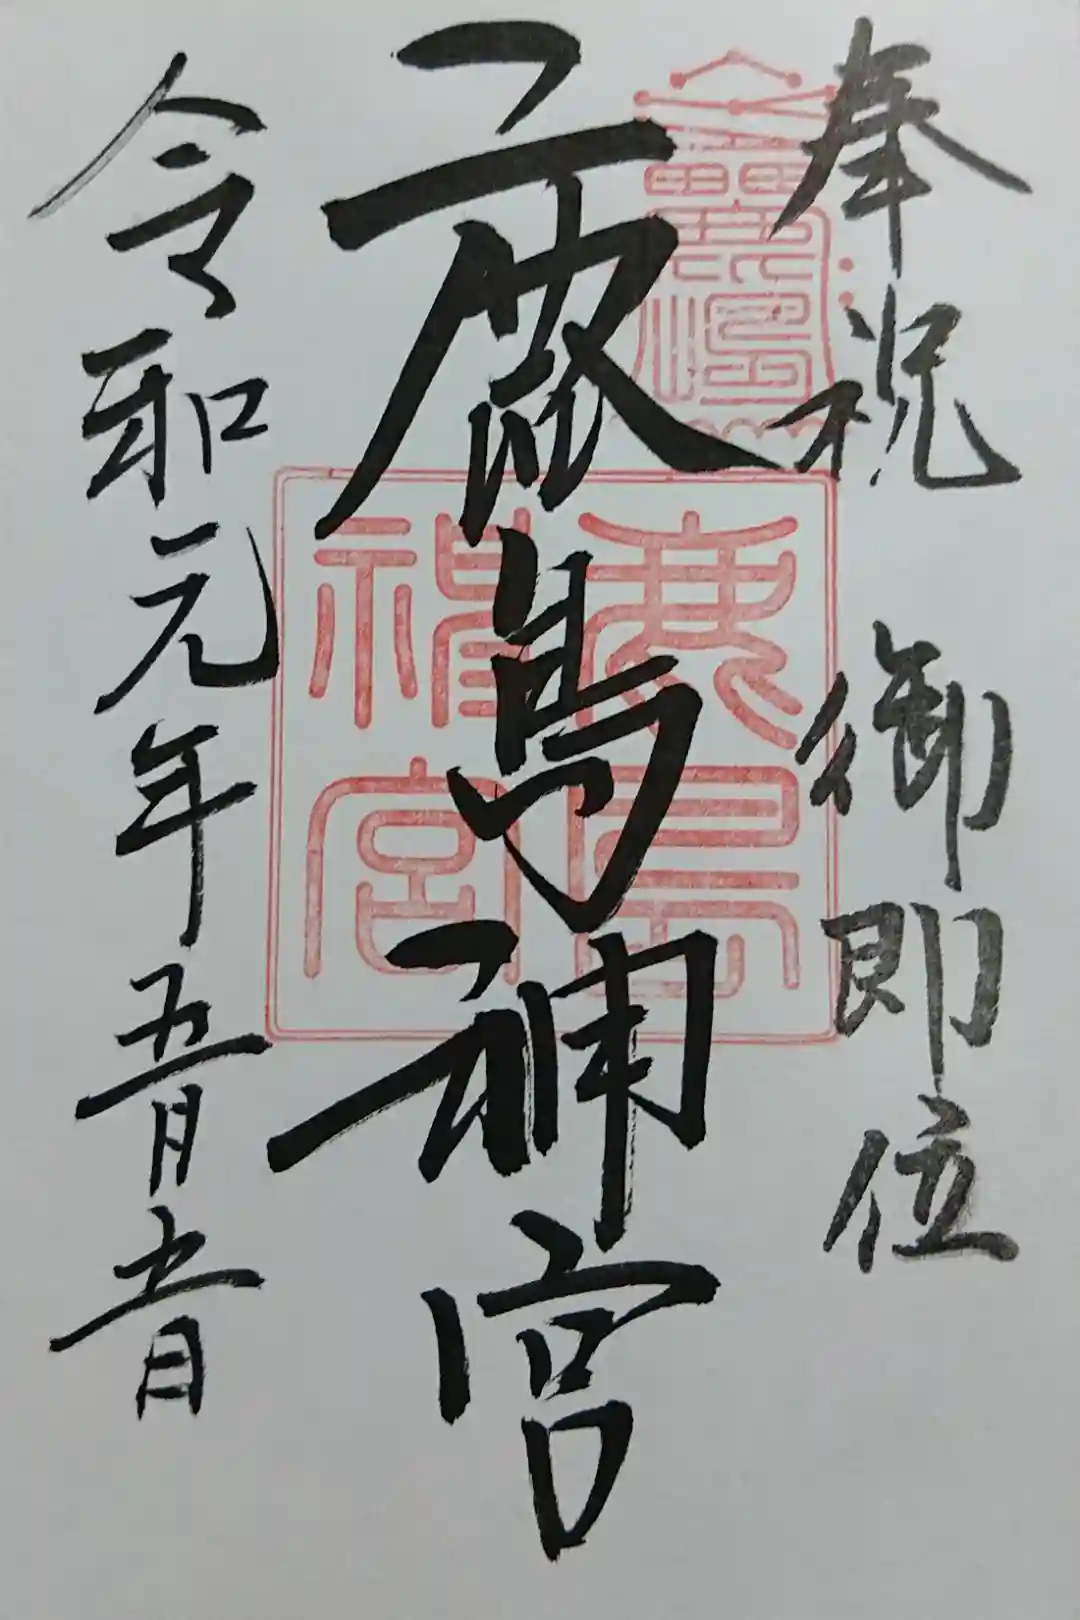 奉祝 御即位
鹿島神宮
令和元年五月五日
鹿島
神宮